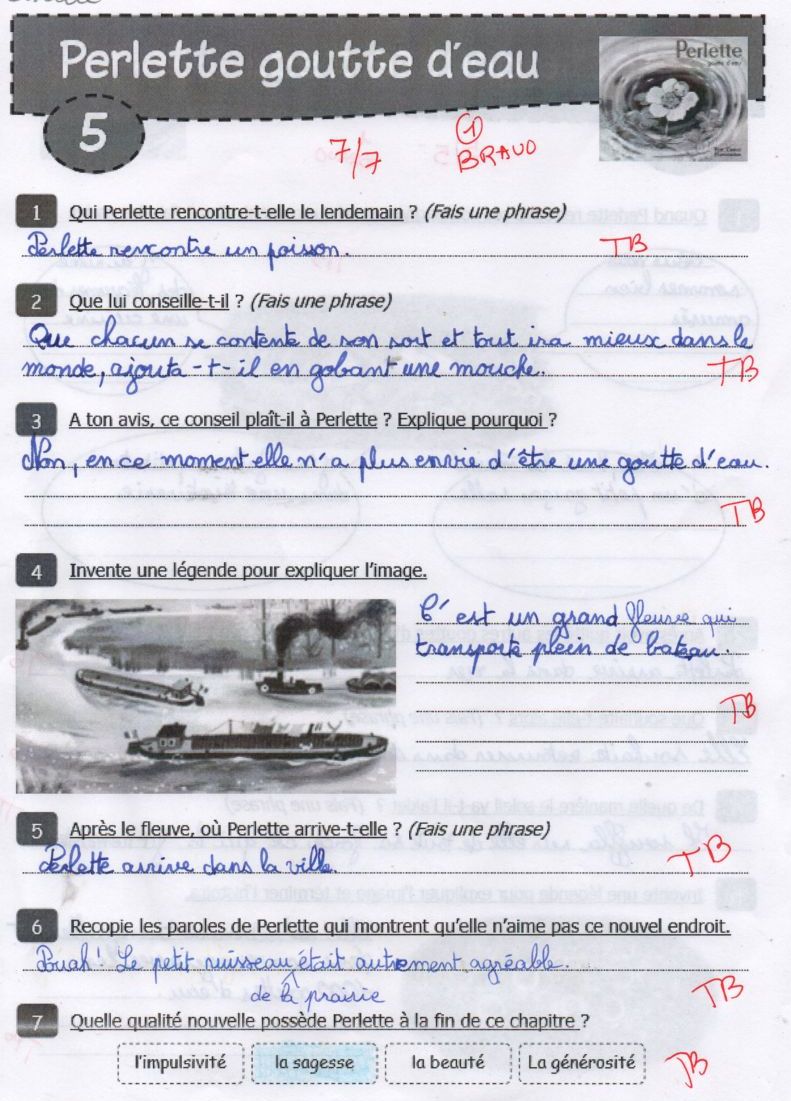 Perlette goutte d'eau
Perlette
goutte d'eau
5
7/7
1
BRAVO
1 Qui Perlette rencontre-t-elle le lendemain ? (Fais une phrase)
Perlette rencontre un poisson.
TB
2 Que lui conseille-t-il ? (Fais une phrase)
Que chacun se contente de son sort et tout ira mieux dans le
monde, ajouta-t-il en gobant une mouche.
TB
3 A ton avis, ce conseil plaît-il à Perlette ? Explique pourquoi ?
Non, en ce moment elle n'a plus envie d'être une goutte d'eau.
TB
4 Invente une légende pour expliquer l'image.
C'est un grand fleuve qui
transporte plein de bateau.
TB
5 Après le fleuve, où Perlette arrive-t-elle ? (Fais une phrase)
Perlette arrive dans la ville.
TB
6 Recopie les paroles de Perlette qui montrent qu'elle n'aime pas ce nouvel endroit.
Pouah! Le petit ruisseau était autrement agréable.
de la prairie
TB
7 Quelle qualité nouvelle possède Perlette à la fin de ce chapitre ?
l'impulsivité la sagesse la beauté La générosité
TB